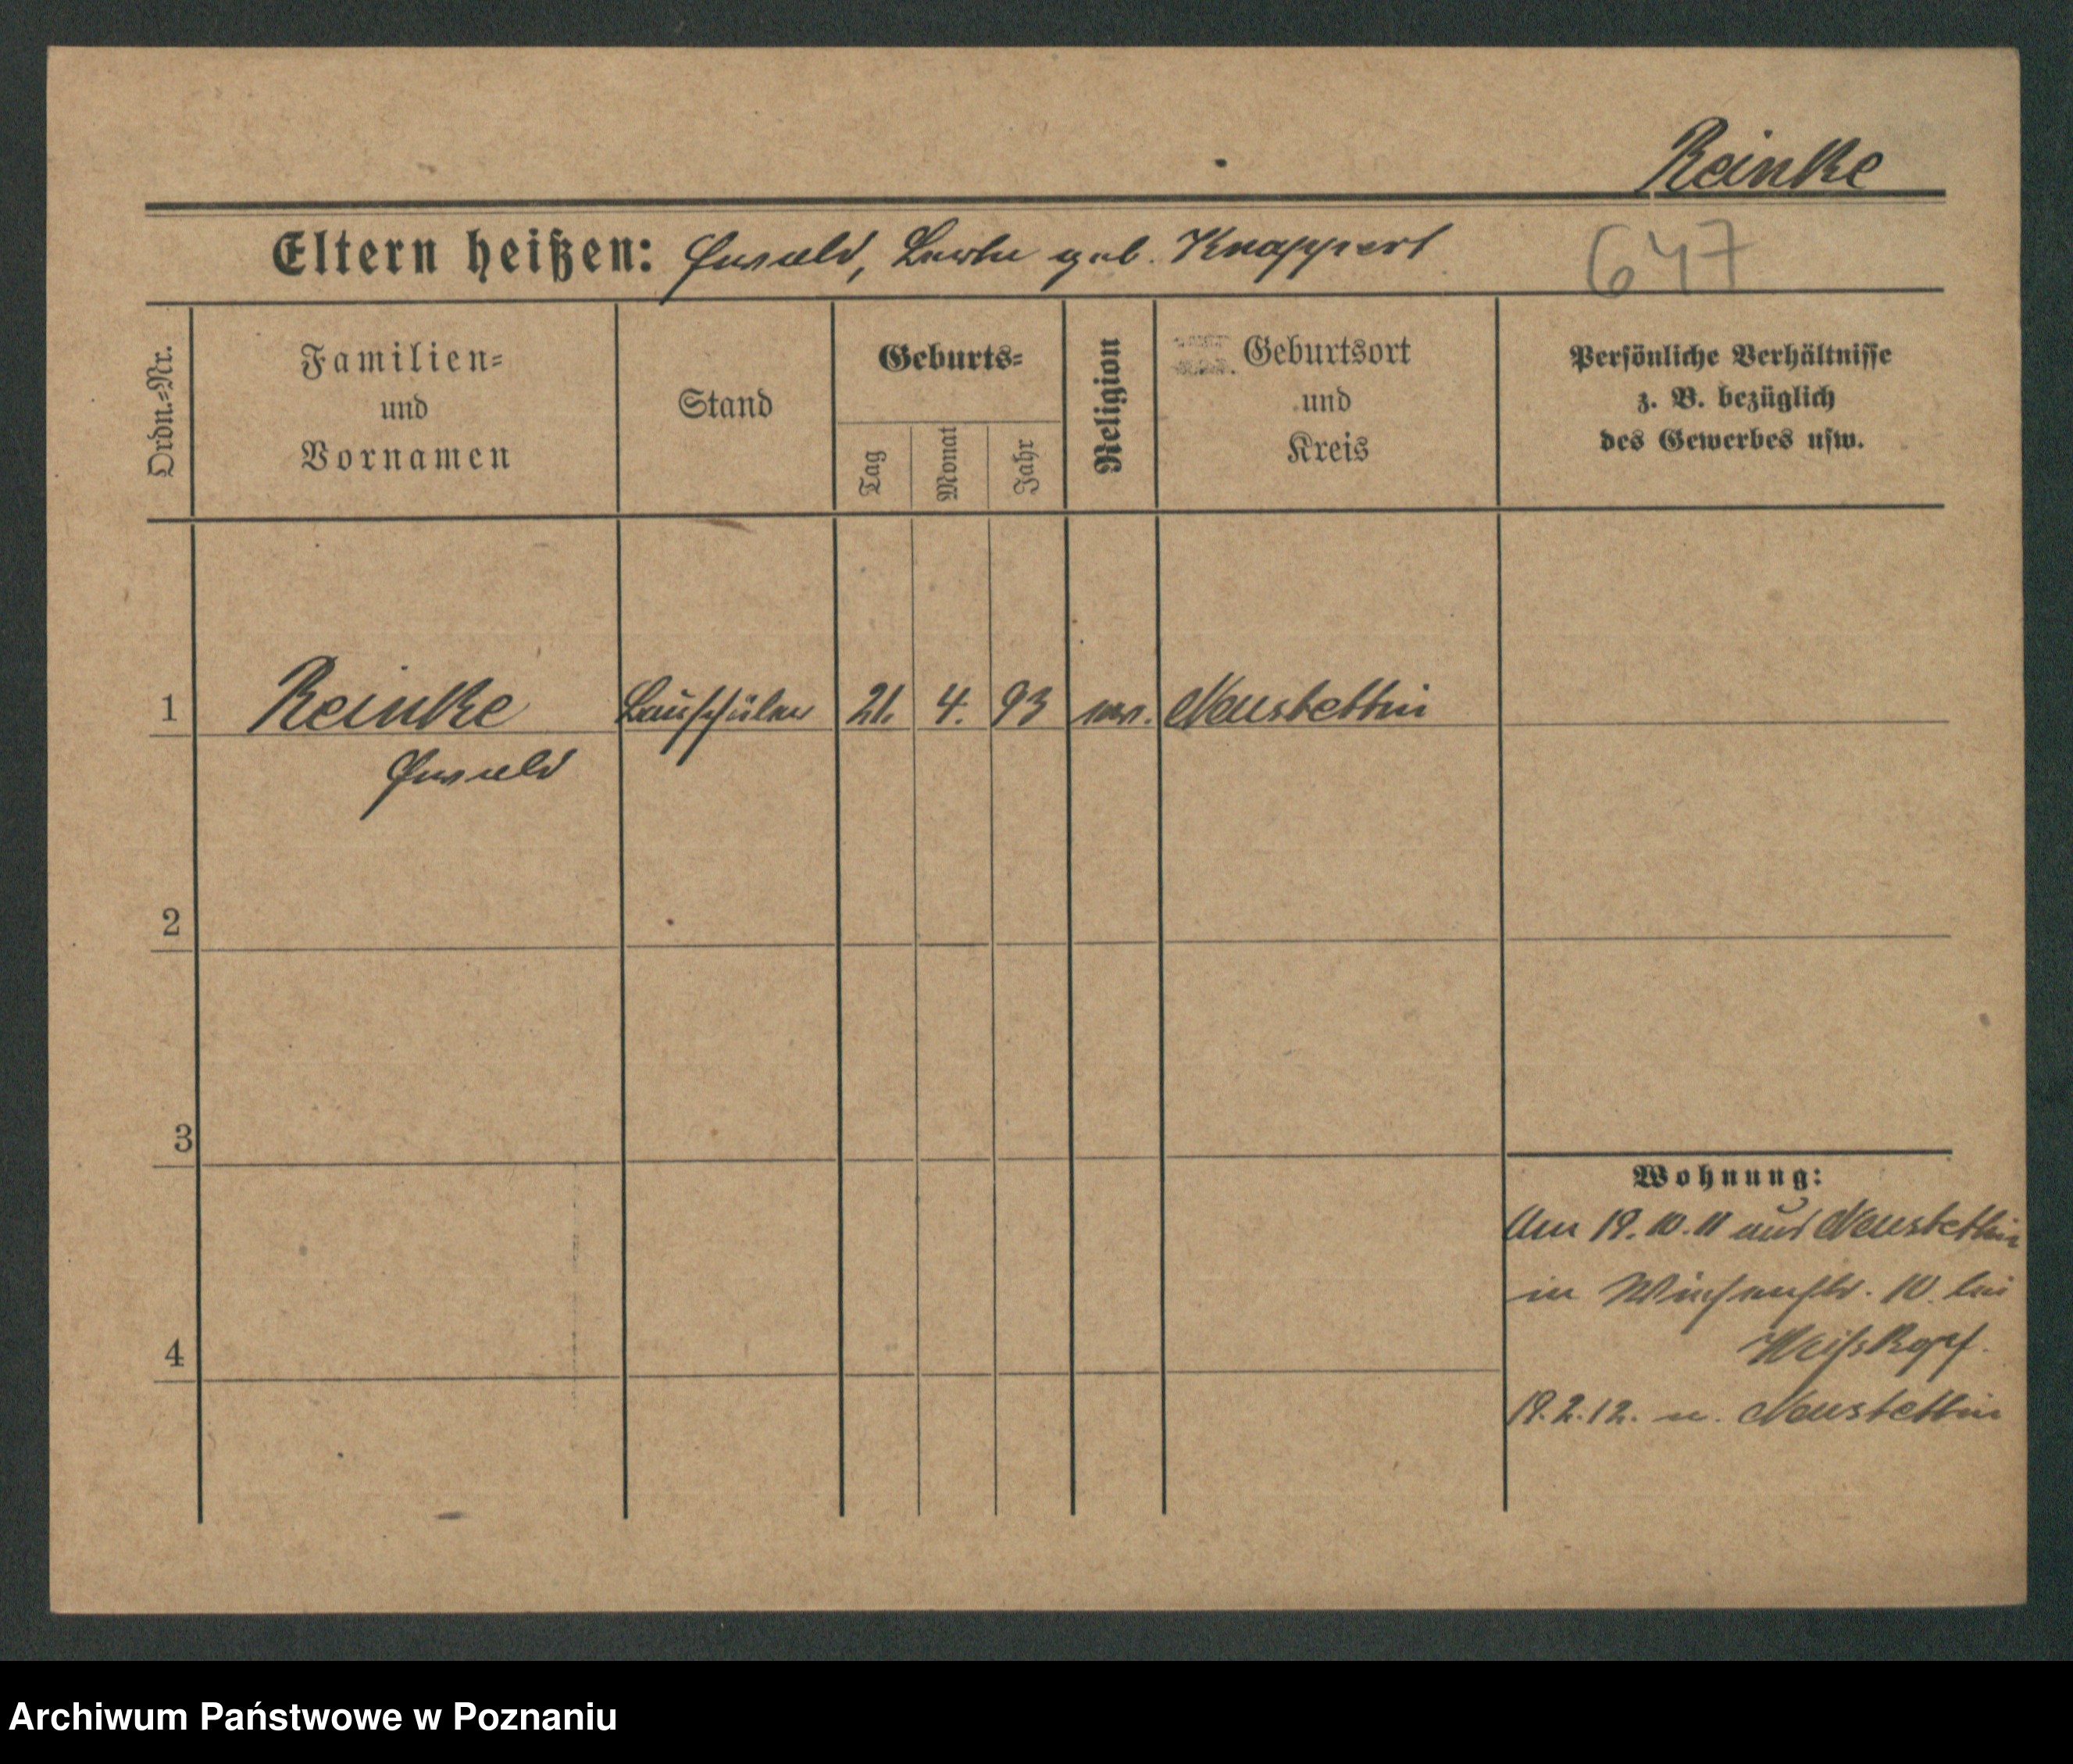 Reinke
Eltern heißen: Ewald, geb. Knappert
647
Ordn.=Nr.
Familien=
und
Vornamen
Stand
Geburts=
Tag
Monat
Jahr
Religion
Geburtsort
und
Kreis
Persönliche Verhältnisse
z. B. bezüglich
des Gewerbes usw.
1 Reinke Bauschüler 21. 4. 93 ev. Neustettin
Ewald
2
3
4
Wohnung:
Am 19.10.11 aus Neustettin
in 10. bei
Weißkopf.
19.2.12. n. Neustettin
Archiwum Państwowe w Poznaniu